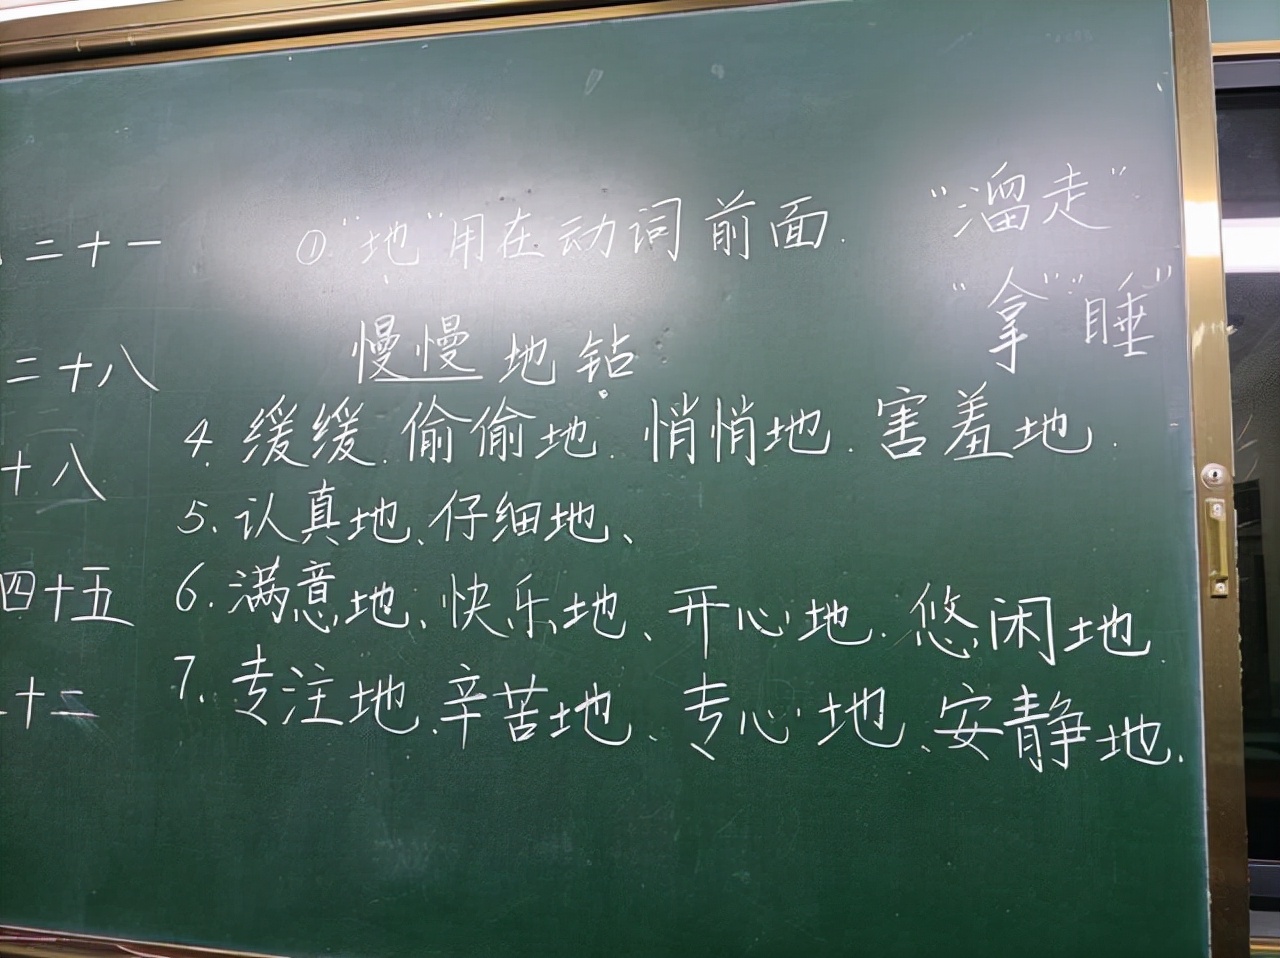 二十一 ①"地"用在动词前面. "溜走"
"拿""睡"
二十八 慢慢地钻
十八 4. 缓缓. 偷偷地. 悄悄地. 害羞地.
5. 认真地、仔细地、
四十五 6. 满意地、快乐地、开心地. 悠闲地.
十二 7. 专注地、辛苦地、专心地、安静地.